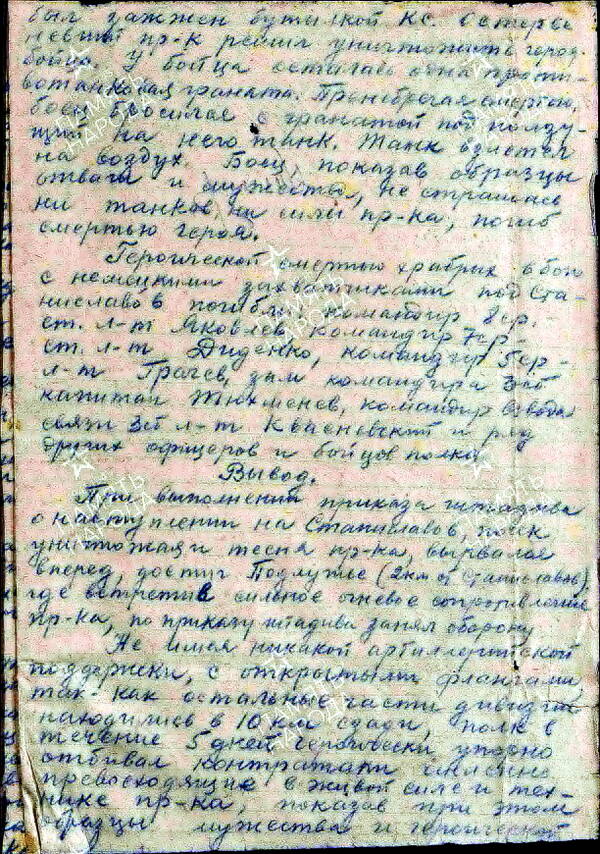 был зажжен бутылкой КС. Остерве
невший пр-к решил уничтожить героя
бойца. У бойца осталась одна проти-
вотанковая граната. Пренебрегая смертью,
боец бросился с гранатой под ползу-
щий на него танк. Танк взлетел
на воздух. Боец, показав образцы
отваги и мужества, не страшась
ни танков ни силы пр-ка, погиб
смертью героя.
Героической смертью храбрых в бою
с немецкими захватчиками под Ста-
ниславов погибли: командир 8ср. -
ст. л-т Яковлев, командир 7ср -
ст. л-т Диденко, командир 5ср -
л-т Грачев, зам командира 3сб
капитан Тюхменев, командир взвода
связи 3сб л-т Квасневский и ряд
других офицеров и бойцов полка.
Вывод.
При выполнении приказа штадива
о наступлении на Станиславов, полк
уничтожая и тесня пр-ка, вырвался
вперед, достиг Подлужье (2км от Станиславов),
где встретив сильное огневое сопротивление
пр-ка, по приказу штадива занял оборону
Не имея никакой артиллерийской
поддержки, с открытыми флангами,
так-как остальные части дивизии
находились в 10 км сзади, полк в
течение 5 дней героически упорно
отбивал контратаки
превосходящих в живой силе и тех-
нике пр-ка, показав при этом
образцы мужества и героической
ПАМЯТЬ НАРОДА
ПАМЯТЬ НАРОДА
ПАМЯТЬ НАРОДА
ПАМЯТЬ НАРОДА
ПАМЯТЬ НАРОДА
ПАМЯТЬ НАРОДА
ПАМЯТЬ НАРОДА